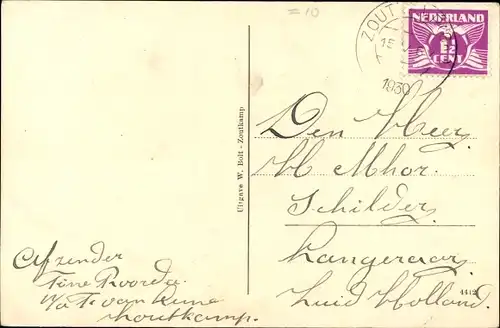 = 10
ZOUT
NEDERLAND
1½
CENT
15
1930
Uitgave W. Bolt - Zoutkamp
Den Heer
Schilder
Langeraar
Zuid Holland.
4412
Afzender
Tine Roorda.
van
Zoutkamp.